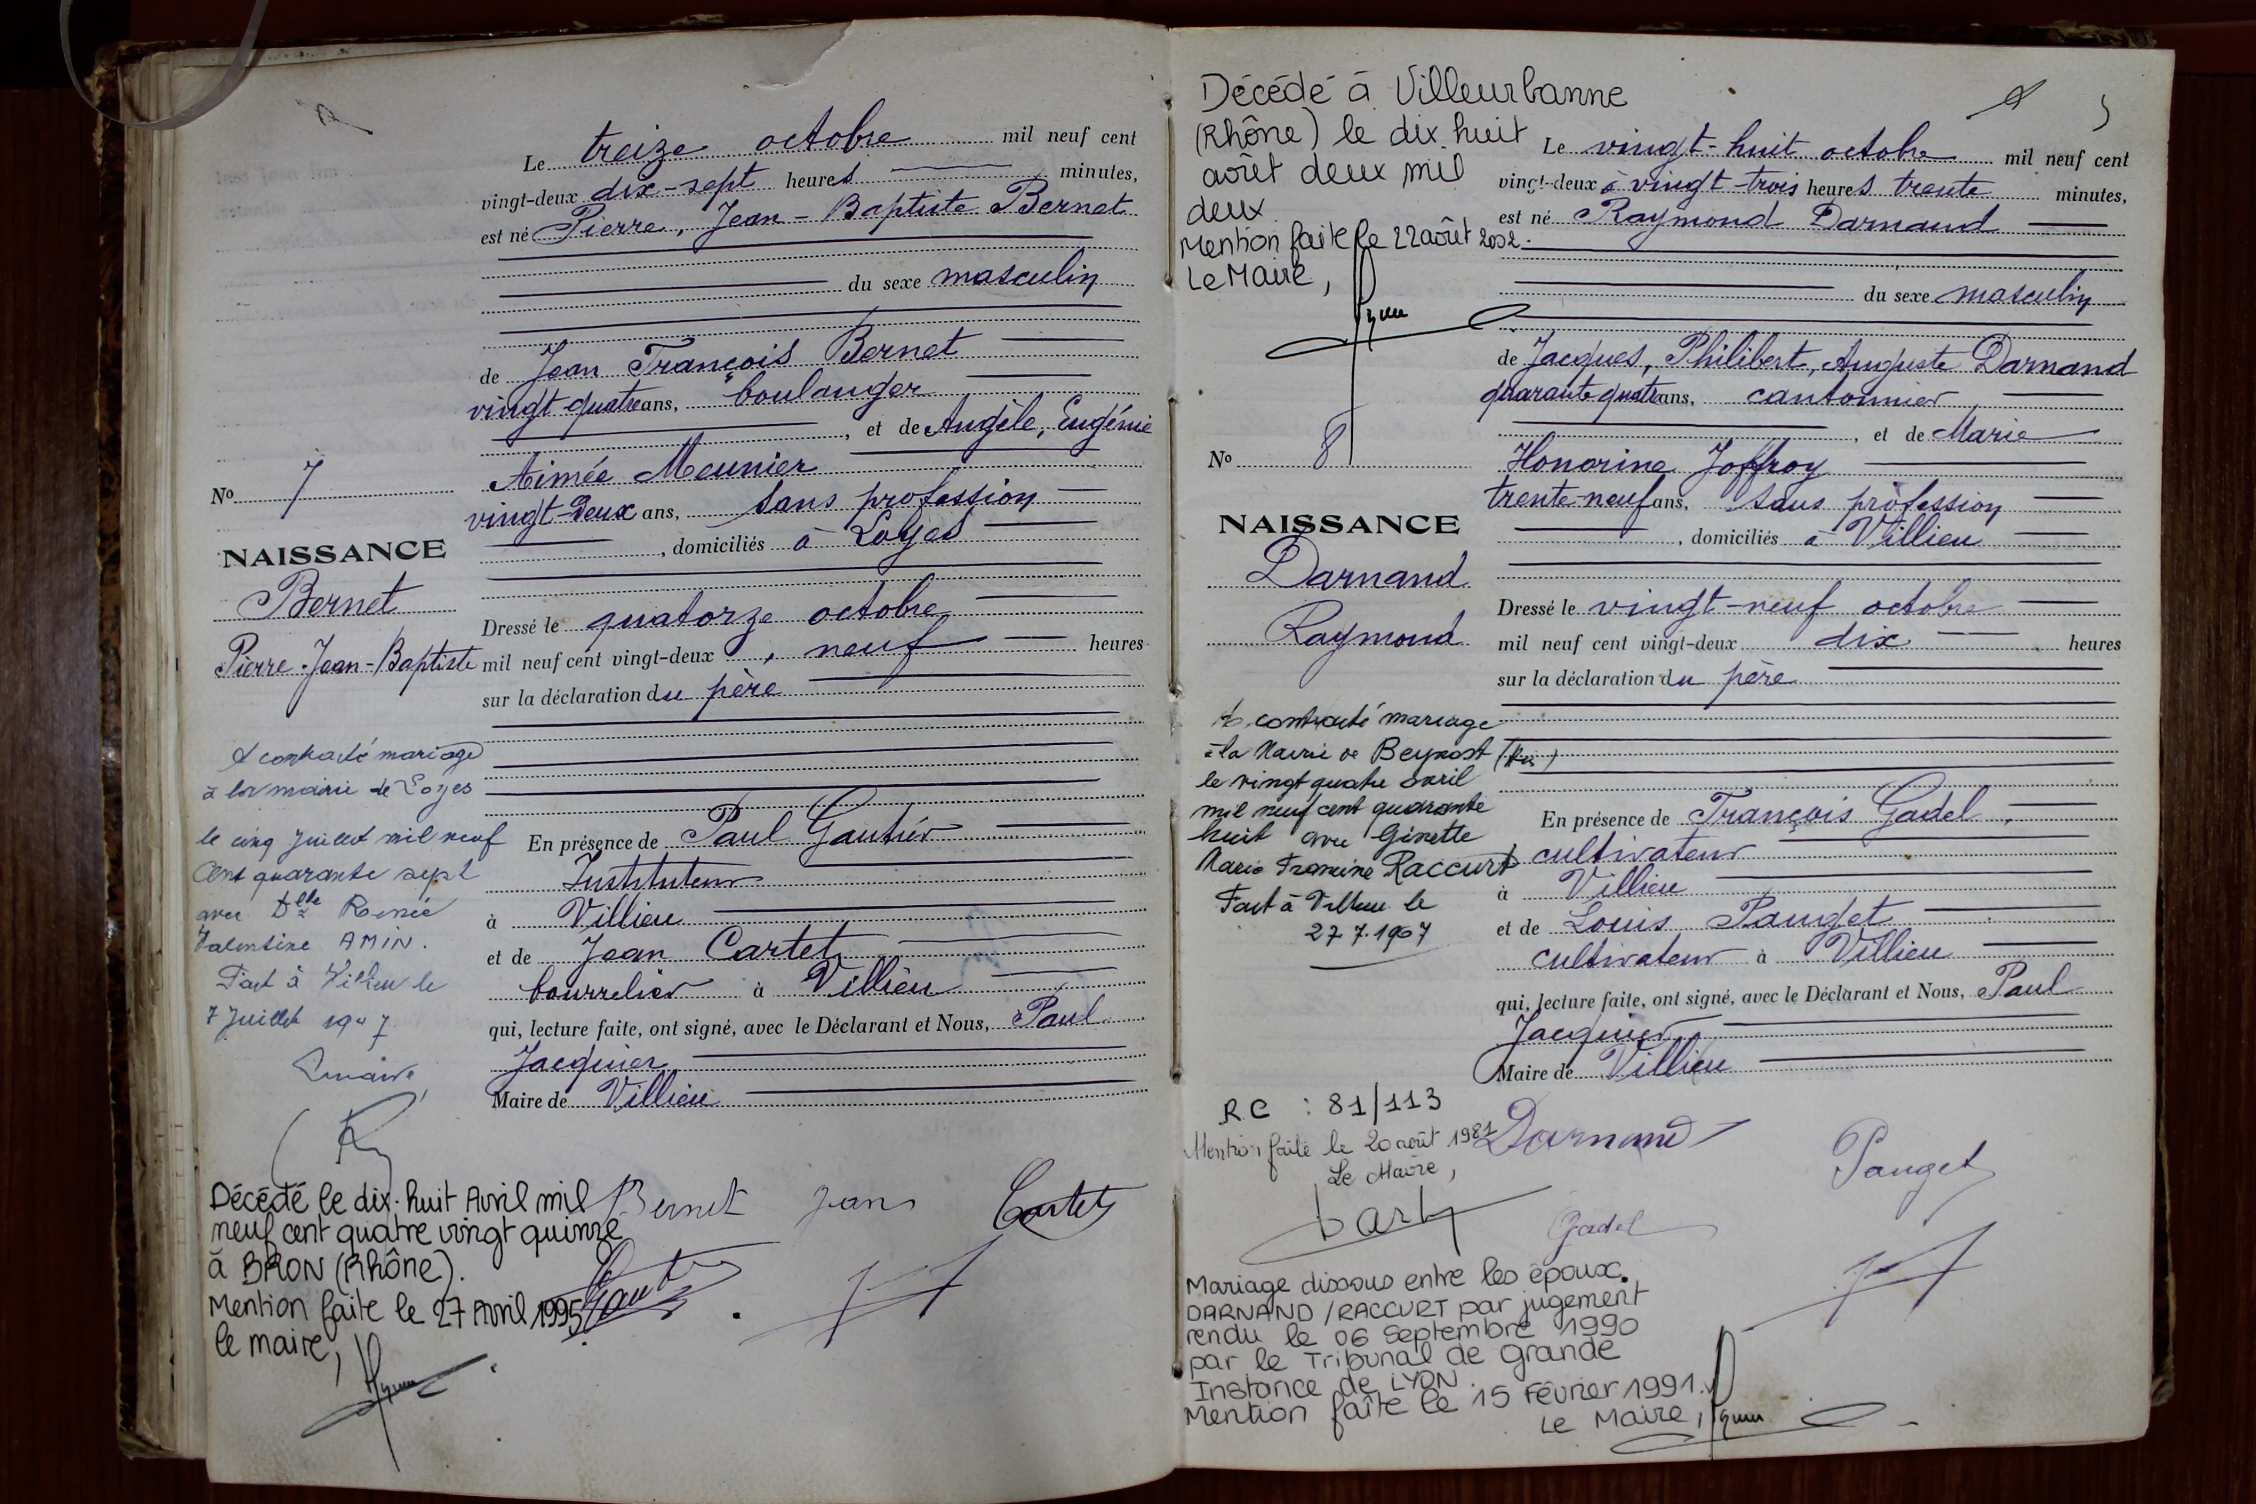 Le treize octobre mil neuf cent
vingt-deux dix-sept heures minutes,
est né Pierre, Jean-Baptiste Bernet
du sexe masculin
de Jean François Bernet
vingt quatre ans, boulanger
, et de Angèle, Eugénie
Aimée Meunier
vingt-deux ans, sans profession
, domiciliés à Loyes
Dressé le quatorze octobre
mil neuf cent vingt-deux, neuf heures
sur la déclaration du père
En présence de Paul Gautier
Instituteur
à Villieu
et de Jean Cartet
bourrelier à Villieu
qui, lecture faite, ont signé, avec le Déclarant et Nous, Paul
Jacquier
Maire de Villieu
Bernet Jean Cartet
No 7
NAISSANCE
Bernet
Pierre-Jean-Baptiste
A contracté mariage
à la mairie de Loyes
le cinq juillet mil neuf
cent quarante sept
avec Dlle Renée
Valentine AMIN.
Fait à Villieu le
7 Juillet 1947
Décédé le dix-huit Avril mil
neuf cent quatre vingt quinze
à BRON (Rhône).
Mention faite le 27 Avril 1995
le maire,
Décédé à Villeurbanne
(Rhône) le dix huit
août deux mil
deux
Mention faite le 22 août 2002.
Le Maire,
No 8
NAISSANCE
Darnand
Raymond
A contracté mariage
à la Mairie de Beynost (Ain)
le vingt quatre avril
mil neuf cent quarante
huit avec Ginette
Marie Francine RACCURT
Fait à Villieu le
RC : 81/113
Mention faite le 20 août 1981
Le Maire,
Mariage dissous entre les époux.
DARNAND/RACCURT par jugement
rendu le 06 Septembre 1990
par le Tribunal de Grande
Instance de LYON.
Mention faîte le 15 Février 1991.
Le Maire,
Le vingt-huit octobre mil neuf cent
vingt-deux à vingt-trois heures trente minutes,
est né Raymond Darnand
du sexe masculin
de Jacques, Philibert, Auguste Darnand
quarante quatre ans, cantonnier,
, et de Marie
Honorine Joffroy
trente-neuf ans, sans profession
, domiciliés à Villieu
Dressé le vingt-neuf octobre
mil neuf cent vingt-deux dix heures
sur la déclaration du père
En présence de François Gadel,
cultivateur
à Villieu
et de Louis Pauget
cultivateur à Villieu
qui, lecture faite, ont signé, avec le Déclarant et Nous, Paul
Jacquier
Maire de Villieu
Darnand
Pauget
Gadel